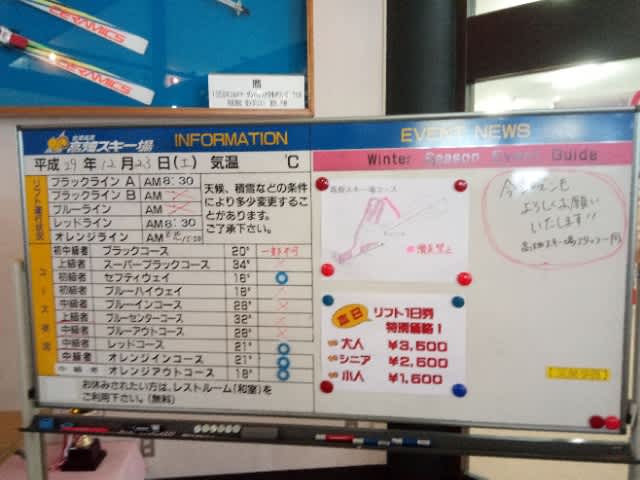 CERAMICS
CERAMICS
会津高原
高畑スキー場 INFORMATION
平成29年12月23日(土) 気温 ℃
リフト運行状況
ブラックライン A AM8:30
ブラックライン B AM
ブルーライン AM
レッドライン AM8:30
オレンジライン AM
天候、積雪などの条件
により多少変更するこ
とがあります。
ご了承下さい。
コース状況
初中級者 ブラックコース 20° 一部不可
上級者 スーパーブラックコース 34°
初級者 セフティウェイ 16° ○
初級者 ブルーハイウェイ 18° ×
中級者 ブルーインコース 28° ×
上級者 ブルーセンターコース 32° ×
中級者 ブルーアウトコース 28° ×
中級者 レッドコース 21° ○
中級者 オレンジインコース 21° ○
中級者 オレンジアウトコース 18° ○
お休みされたい方は、レストルーム(和室)を
ご利用下さい。(無料)
EVENT NEWS
Winter Season Event Guide
高畑スキー場コース
滑走禁止
平日 リフト1日券
特別価格!
大人 ¥3,500
シニア ¥2,500
小人 ¥1,500
今シーズンも
よろしくお願い
いたします!!
高畑スキー場スタッフ一同